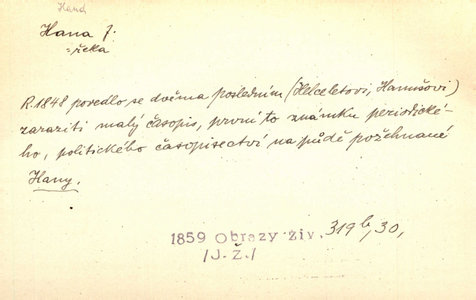 Hand
Hana f.
řeka
R. 1848 povedlo se dvěma posledním (Helceletovi, Hanušovi)
zaraziti malý časopis, první to známku periodické-
ho, politického časopisectví na půdě požehnané
Hany.
1859 Obrazy živ. 319b, 30,
/J.Ž./